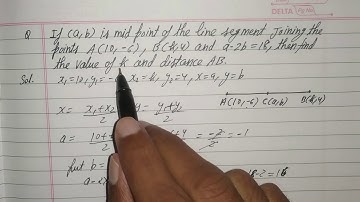 DELTA
Q. If (a,b) is mid point of the line segment joining the
points A(10,-6), B(k,4) and a-2b=18, then find
the value of k and distance AB.
Sol. x₁=10, y₁= x₂=k, y₂=4, x=a, y=b
x = x₁+x₂/2 y = y₁+y₂/2
A(10,-6) C(a,b) B(k,4)
a = 10+ = -2/2 = -1
put b =
18-2=16